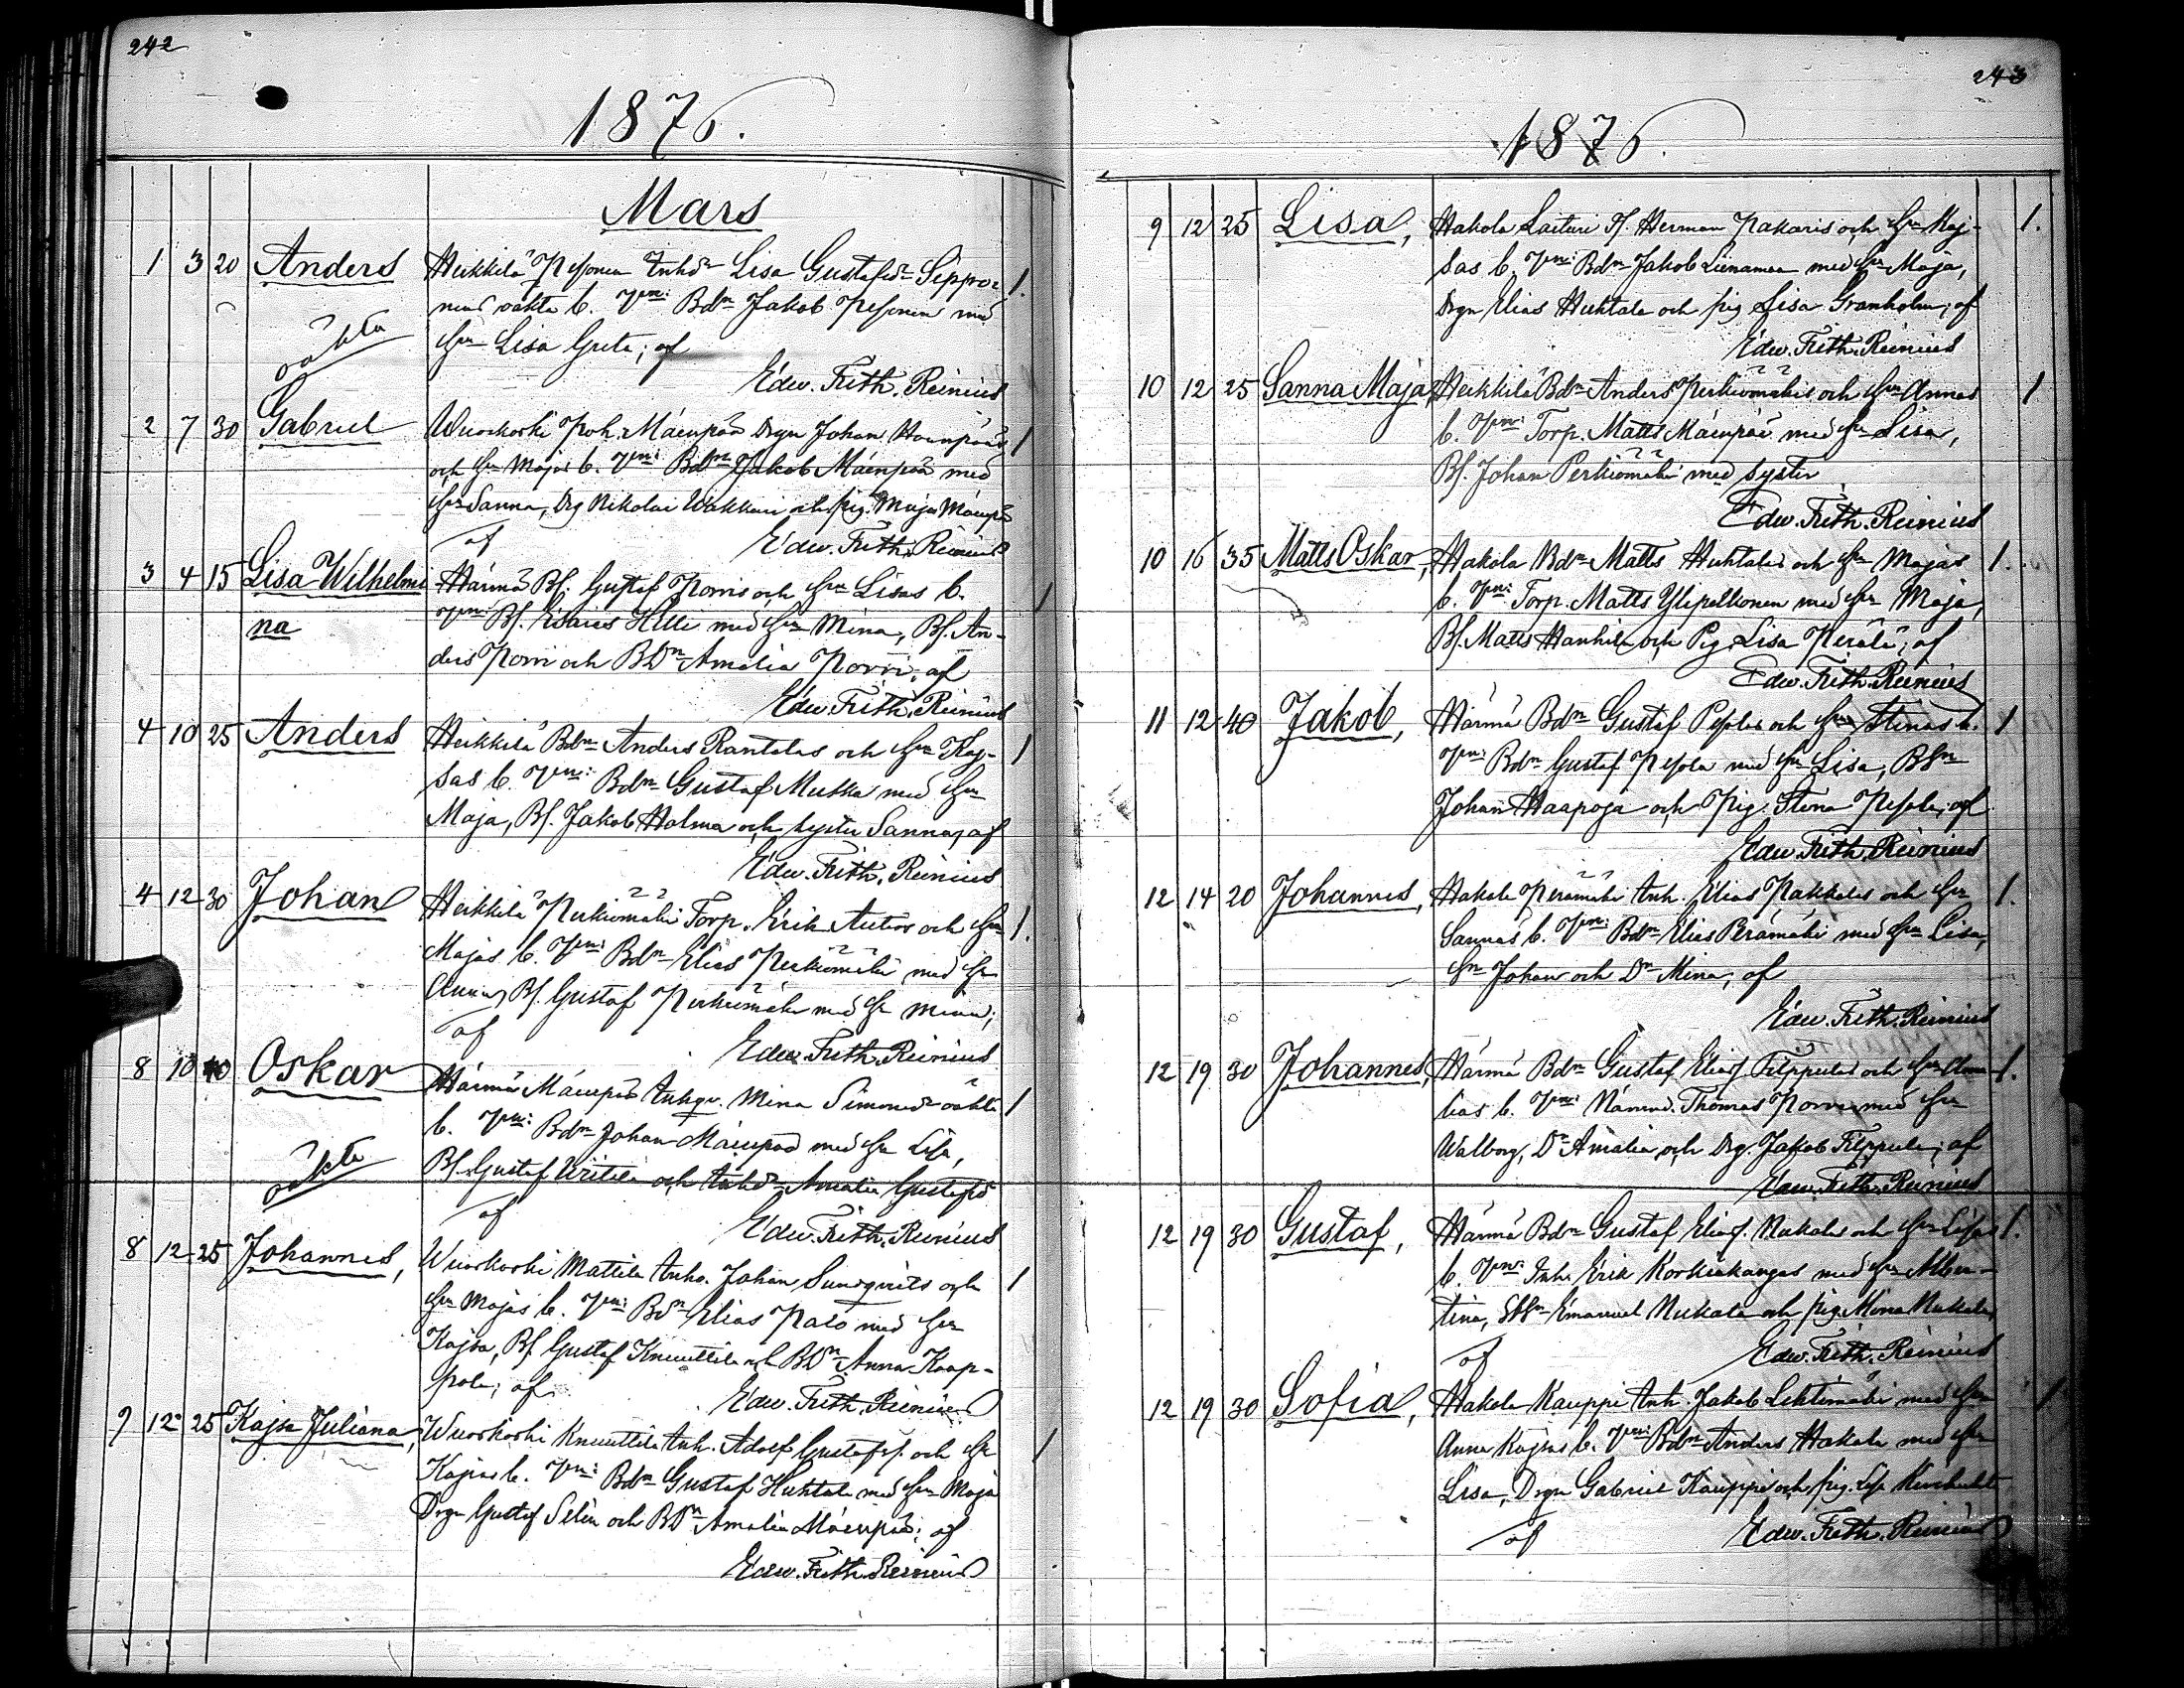 242
1876.
Mars
1 3 20 Anders Heikkilä Pesonen Inhd Lisa Gustafsdr Sippo-
nens oäkta b. Vne: Bdn Jakob Pesonen med 1.
oäkta
Hu Lisa Greta; af
Edw. Frith. Reinius
2 7 30 Gabriel Wuoskoski Poh. Mäenpää Drgn Johan 1
och Hu Majas b. Vne: Bdn Jakob Mäenpää med
Hu Sanna, Drg Nikolai Wakkuri och pig. Maja Mäenpää
af Edw. Frith. Reinius
3 4 15 Lisa Wilhelmi Härmä Bs. Gustaf Porris och Hu Lisas b. 1
na Vne: Bs. Esaias Hilli med Hu Mina, Bs. An-
ders Porri och BDr Amalia Porri; af
Edw. Frith. Reinius
4 10 25 Anders Heikkilä Bdn Anders Rantalas och Hu Kaj- 1
sas b. Vne: Bdn Gustaf Mutka med Hu
Maja, Bs. Jakob Holma och syster Sanna, af
Edw. Frith. Reinius
4 12 30 Johan Heikkilä Perkiömäki Torp. Erik Autios och Hu 1.
Majas b. Vne: Bdn Elias Perkiömäki med Hu
Anna, Bs. Gustaf Perkiömäki med Hu Mina;
af Edw. Frith. Reinius
8 10 40 Oskar Härmä Mäenpää Inhqv. Mina Simonsdr oäkta 1
b. Vne: Bdn Johan Mäenpää med Hu Lisa,
oäkta
Bs. Gustaf och Inhd Amalia Gustafsd
af Edw. Frith. Reinius
8 12 25 Johannes, Wuoskoski Mattila Inhs. Johan Sundqvists och 1
Hu Majas b. Vne: Bdn Elias Palo med Hu
Kajsa, Bs Gustaf Knuuttila och BDr Anna Kaap-
pola; af Edw. Frith. Reinius
9 12 25 Kajsa Juliana, Wuoskoski Knuuttila Inh. Adolf Gustafss. och Hu 1
Kajsas b. Vne: Bdn Gustaf Huhtala med Hu Maja
Drgn Gustaf Selin och BDr Amalia Mäenpää; af
Edw. Frith. Reinius
243
1876.
9 12 25 Lisa, Hakola Laituri Herman Pakaris och Hu Kaj- 1.
sas b. Vne: Bdn Jakob Lienamaa med Hu Maja,
Drgn Elias Huhtala och pig Lisa Granholm; af
Edw. Frith. Reinius
10 12 25 Sanna Maja, Heikkilä Bdn Anders Perkiömäkis och Hu Annas 1
b. Vne: Torp. Matts Mäenpää med Hu Lisa,
Bs. Johan Perkiömäki med syster
Edw. Frith. Reinius
10 16 35 Matts Oskar, Hakola Bdn Matts Huhtalas och Hu Majas 1.
b. Vne: Torp. Matts Ylipelkonen med Hu Maja,
Bs. Matts Hanhila och Pig. Lisa Perälä; af
Edw. Frith. Reinius
11 12 40 Jakob, Härmä Bdn Gustaf Pesolas och Hu Stinas b. 1
Vne: Bdn Gustaf Pesola med Hu Lisa, BSn
Johan Haapoja och Pig. Stina Pesola; af
Edw. Frith. Reinius
12 14 20 Johannes, Hakola Perämäki Inh. Elias Pakkalas och Hu 1.
Sannas b. Vne: Bdn Elias Perämäki med Hu Lisa,
Sn Johan och Dr Mina; af
Edw. Frith. Reinius
12 19 30 Johannes, Härmä Bdn Gustaf Eliass Filppulas och Hu Ama- 1.
lias b. Vne: Nämnd. Thomas Porri med Hu
Walborg, Dr Amalia och Drg. Jakob Filppula; af
Edw. Frith. Reinius
12 19 30 Gustaf, Härmä Bdn Gustaf Eliass. Nukalas och Hu Lisas 1.
b. Vne: Inh. Erik Korkiakangas med Hu Alber-
tina, Emanuel Nukala och pig. Mina Nukala,
af Edw. Frith. Reinius
12 19 30 Sofia, Hakola Kauppi Inh. Jakob Lehtimäki med Hu 1
Anna Kajsas b. Vne: Bdn Anders Hakola med Hu
Lisa, Drgn Gabriel Kauppi och pig. Lisa
af Edw. Frith. Reinius